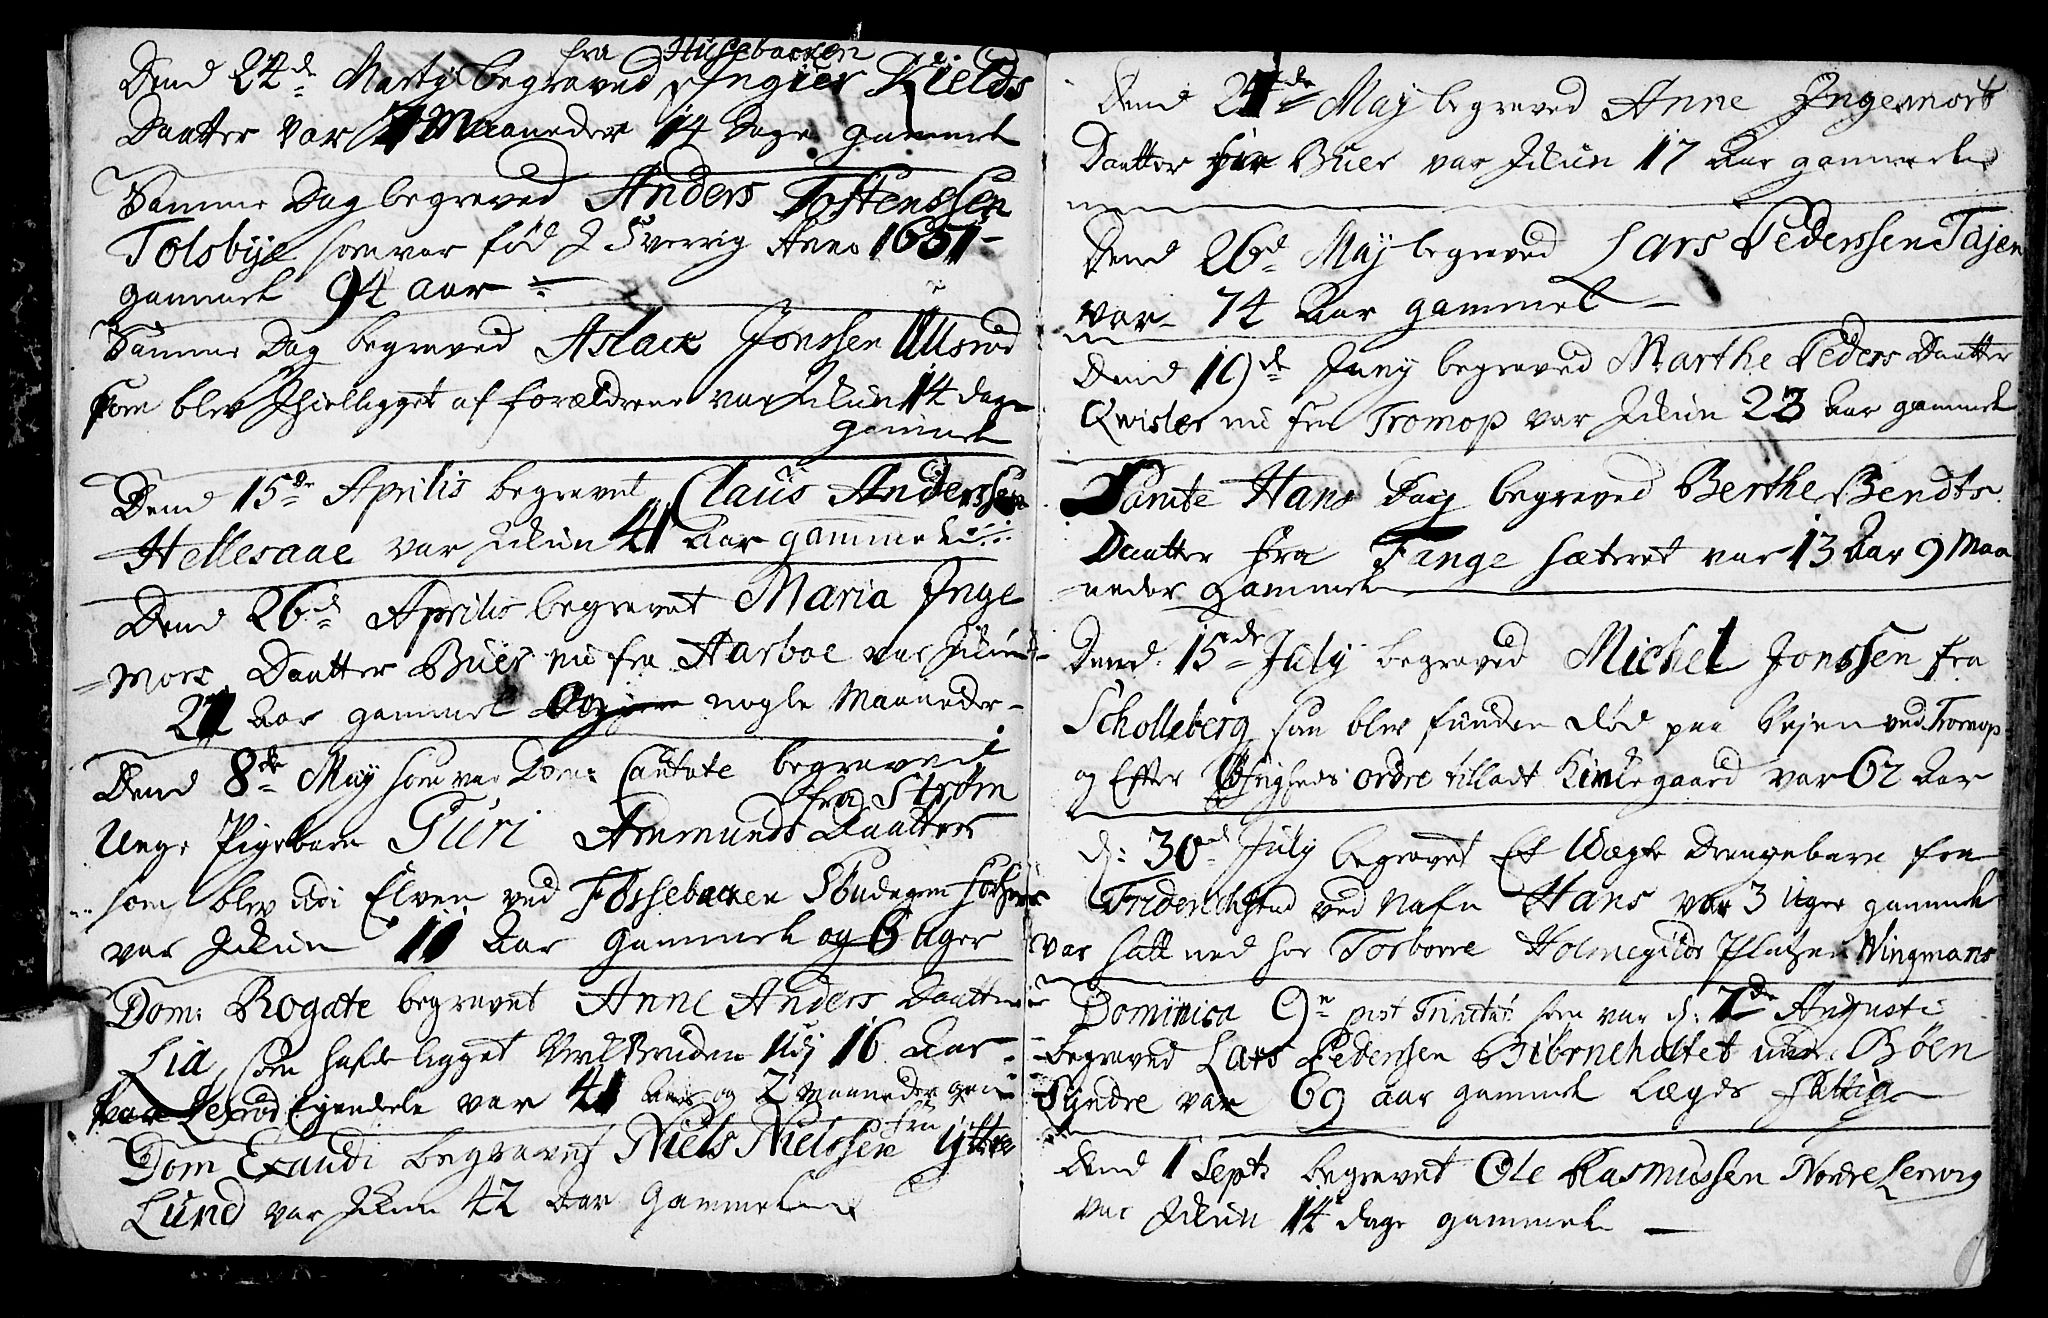 fra Husebacken
Dend 24de Marty begraved Ingier Kields
Daatter var 7 Maaneder 14 Dage gammel
Samme Dag begraved Anders Tostenssen
Tolsbye som var fød J Sverrig Anno 1631
gammel 94 aar
Samme Dag begraved Aslack Jonssen Ullsrød
som blev Jhielligget af forældrene var Ickun 14 dage
gammel
Dend 15de Aprilis begravet Claus Anderssen
Hellesaae var Jckun 41 Aar gammel
Dend 26de Aprilis begravet Maria Inge
mors Daatter Buer nu fra Aarboe var Jckun
21 Aar gammel og nogle Maaneder
Dend 8de May som var Dom: Cantate begraved
fra Strøm
Unge Pigebarn Guri Ammunds Daatter
som blev udi Elven ved Fossebacken Søndagen
var Jckun 11 Aar gammel og 6 uger
Dom: Rogate begravet Anne Anders Daatter
Lia som hafde ligget Udj 16 Aar
paa Lexrød Eyendele var 41 Aar og 2 Maaneder gam
Dom Exaudi begravet Niels Nielssen fra Yttre
Lund var Jckun 42 Aar Gammel
Dend 21de May begraved Anne Ingemors
Daatter Buer var Jckun 17 Aar gammel
Dend 26de May begraved Lars Pederssen Tajen
var 74 Aar gammel
Dend 19de Juny begraved Marthe Peders Daatter
Qvisler nu fra Tromop var Jckun 23 Aar gammel
Sancte Hans Dag begraved Berthe Bendts
Daatter fra Tange sæteret var 13 Aar 9 Maa
neder gammel
Dend 15de July begraved Michel Jonssen fra
Scholleberg som blev funden død paa Vejen ved Tromop
og Efter Øfrigheds ordre tilladt Kirkegaard var 62 Aar
d: 30de July begravet Et Uægte Drengebarn fra
Friderichstad ved Nafn Hans var 3 Uger gammel
var satt ned hos Torborre Holmegilds Pladsen Wingmans
Dominica 9n post Trinitat: som var d: 7de Augusti
begraved Lars Pederssen Biörneholtet under Bøen
Syndre var 69 aar gammel Lægds Fattig
Dend 1 Septr begravet Ole Rasmussen Nordre Lervig
var Jckun 14 dage gammel